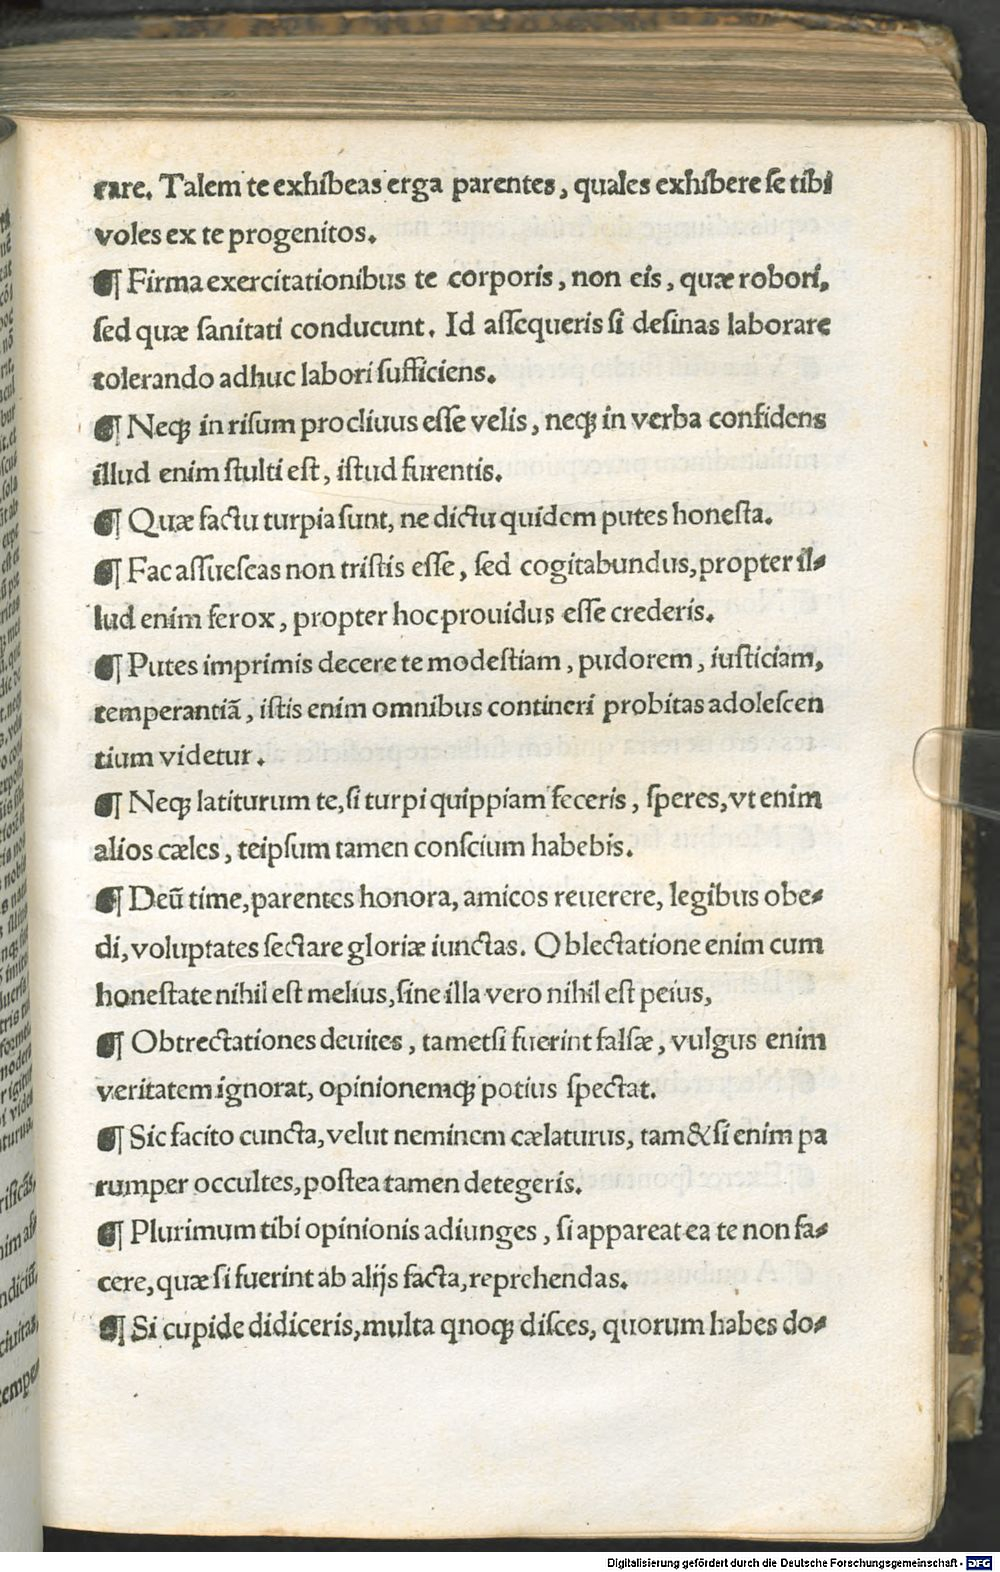 rare. Talem te exhibeas erga parentes, quales exhibere se tibi
voles ex te progenitos.
¶ Firma exercitationibus te corporis, non eis, quæ robori,
sed quæ sanitati conducunt. Id assequeris si desinas laborare
tolerando adhuc labori sufficiens.
¶ Neqꝫ in risum procliuus esse velis, neqꝫ in verba confidens
illud enim stulti est, istud furentis.
¶ Quæ factu turpia sunt, ne dictu quidem putes honesta.
¶ Fac assuescas non tristis esse, sed cogitabundus, propter il⸗
lud enim ferox, propter hoc prouidus esse crederis.
¶ Putes imprimis decere te modestiam, pudorem, iusticiam,
temperantiã, istis enim omnibus contineri probitas adolescen
tium videtur.
¶ Neqꝫ latiturum te, si turpi quippiam feceris, speres, vt enim
alios cæles, teipsum tamen conscium habebis.
¶ Deũ time, parentes honora, amicos reuerere, legibus obe⸗
di, voluptates sectare gloriæ iunctas. Oblectatione enim cum
honestate nihil est melius, sine illa vero nihil est peius,
¶ Obtrectationes deuites, tametsi fuerint falsæ, vulgus enim
veritatem ignorat, opinionemqꝫ potius spectat.
¶ Sic facito cuncta, velut neminem cælaturus, tam&si enim pa
rumper occultes, postea tamen detegeris.
¶ Plurimum tibi opinionis adiunges, si appareat ea te non fa⸗
cere, quæ si fuerint ab alijs facta, reprehendas.
¶ Si cupide didiceris, multa qnoqꝫ disces, quorum habes do⸗
Digitalisierung gefördert durch die Deutsche Forschungsgemeinschaft - DFG